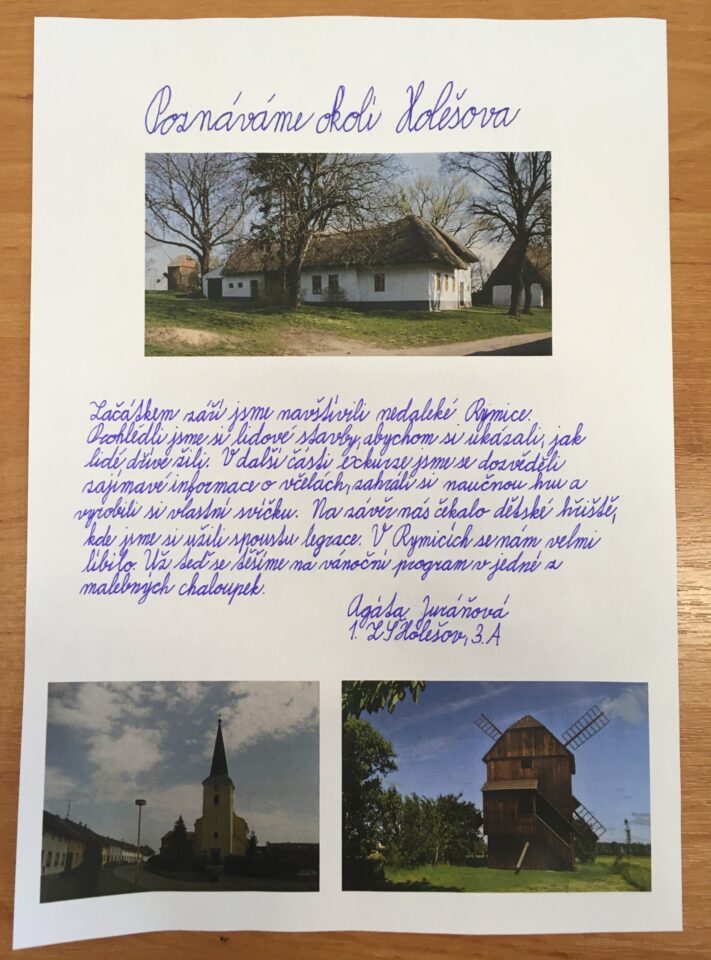 Poznáváme okolí Holešova
Začátkem září jsme navštívili nedaleké Rymice.
Prohlédli jsme si lidové stavby, abychom si ukázali, jak
lidé dříve žili. V další části exkurze jsme se dozvěděli
zajímavé informace o včelách, zahráli si naučnou hru a
vyrobili si vlastní svíčku. Na závěr nás čekalo dětské hřiště,
kde jsme si užili spoustu legrace. V Rymicích se nám velmi
líbilo. Už teď se těšíme na vánoční program v jedné z
malebných chaloupek.
Agáta Juráňová
1. ZŠ Holešov, 3. A